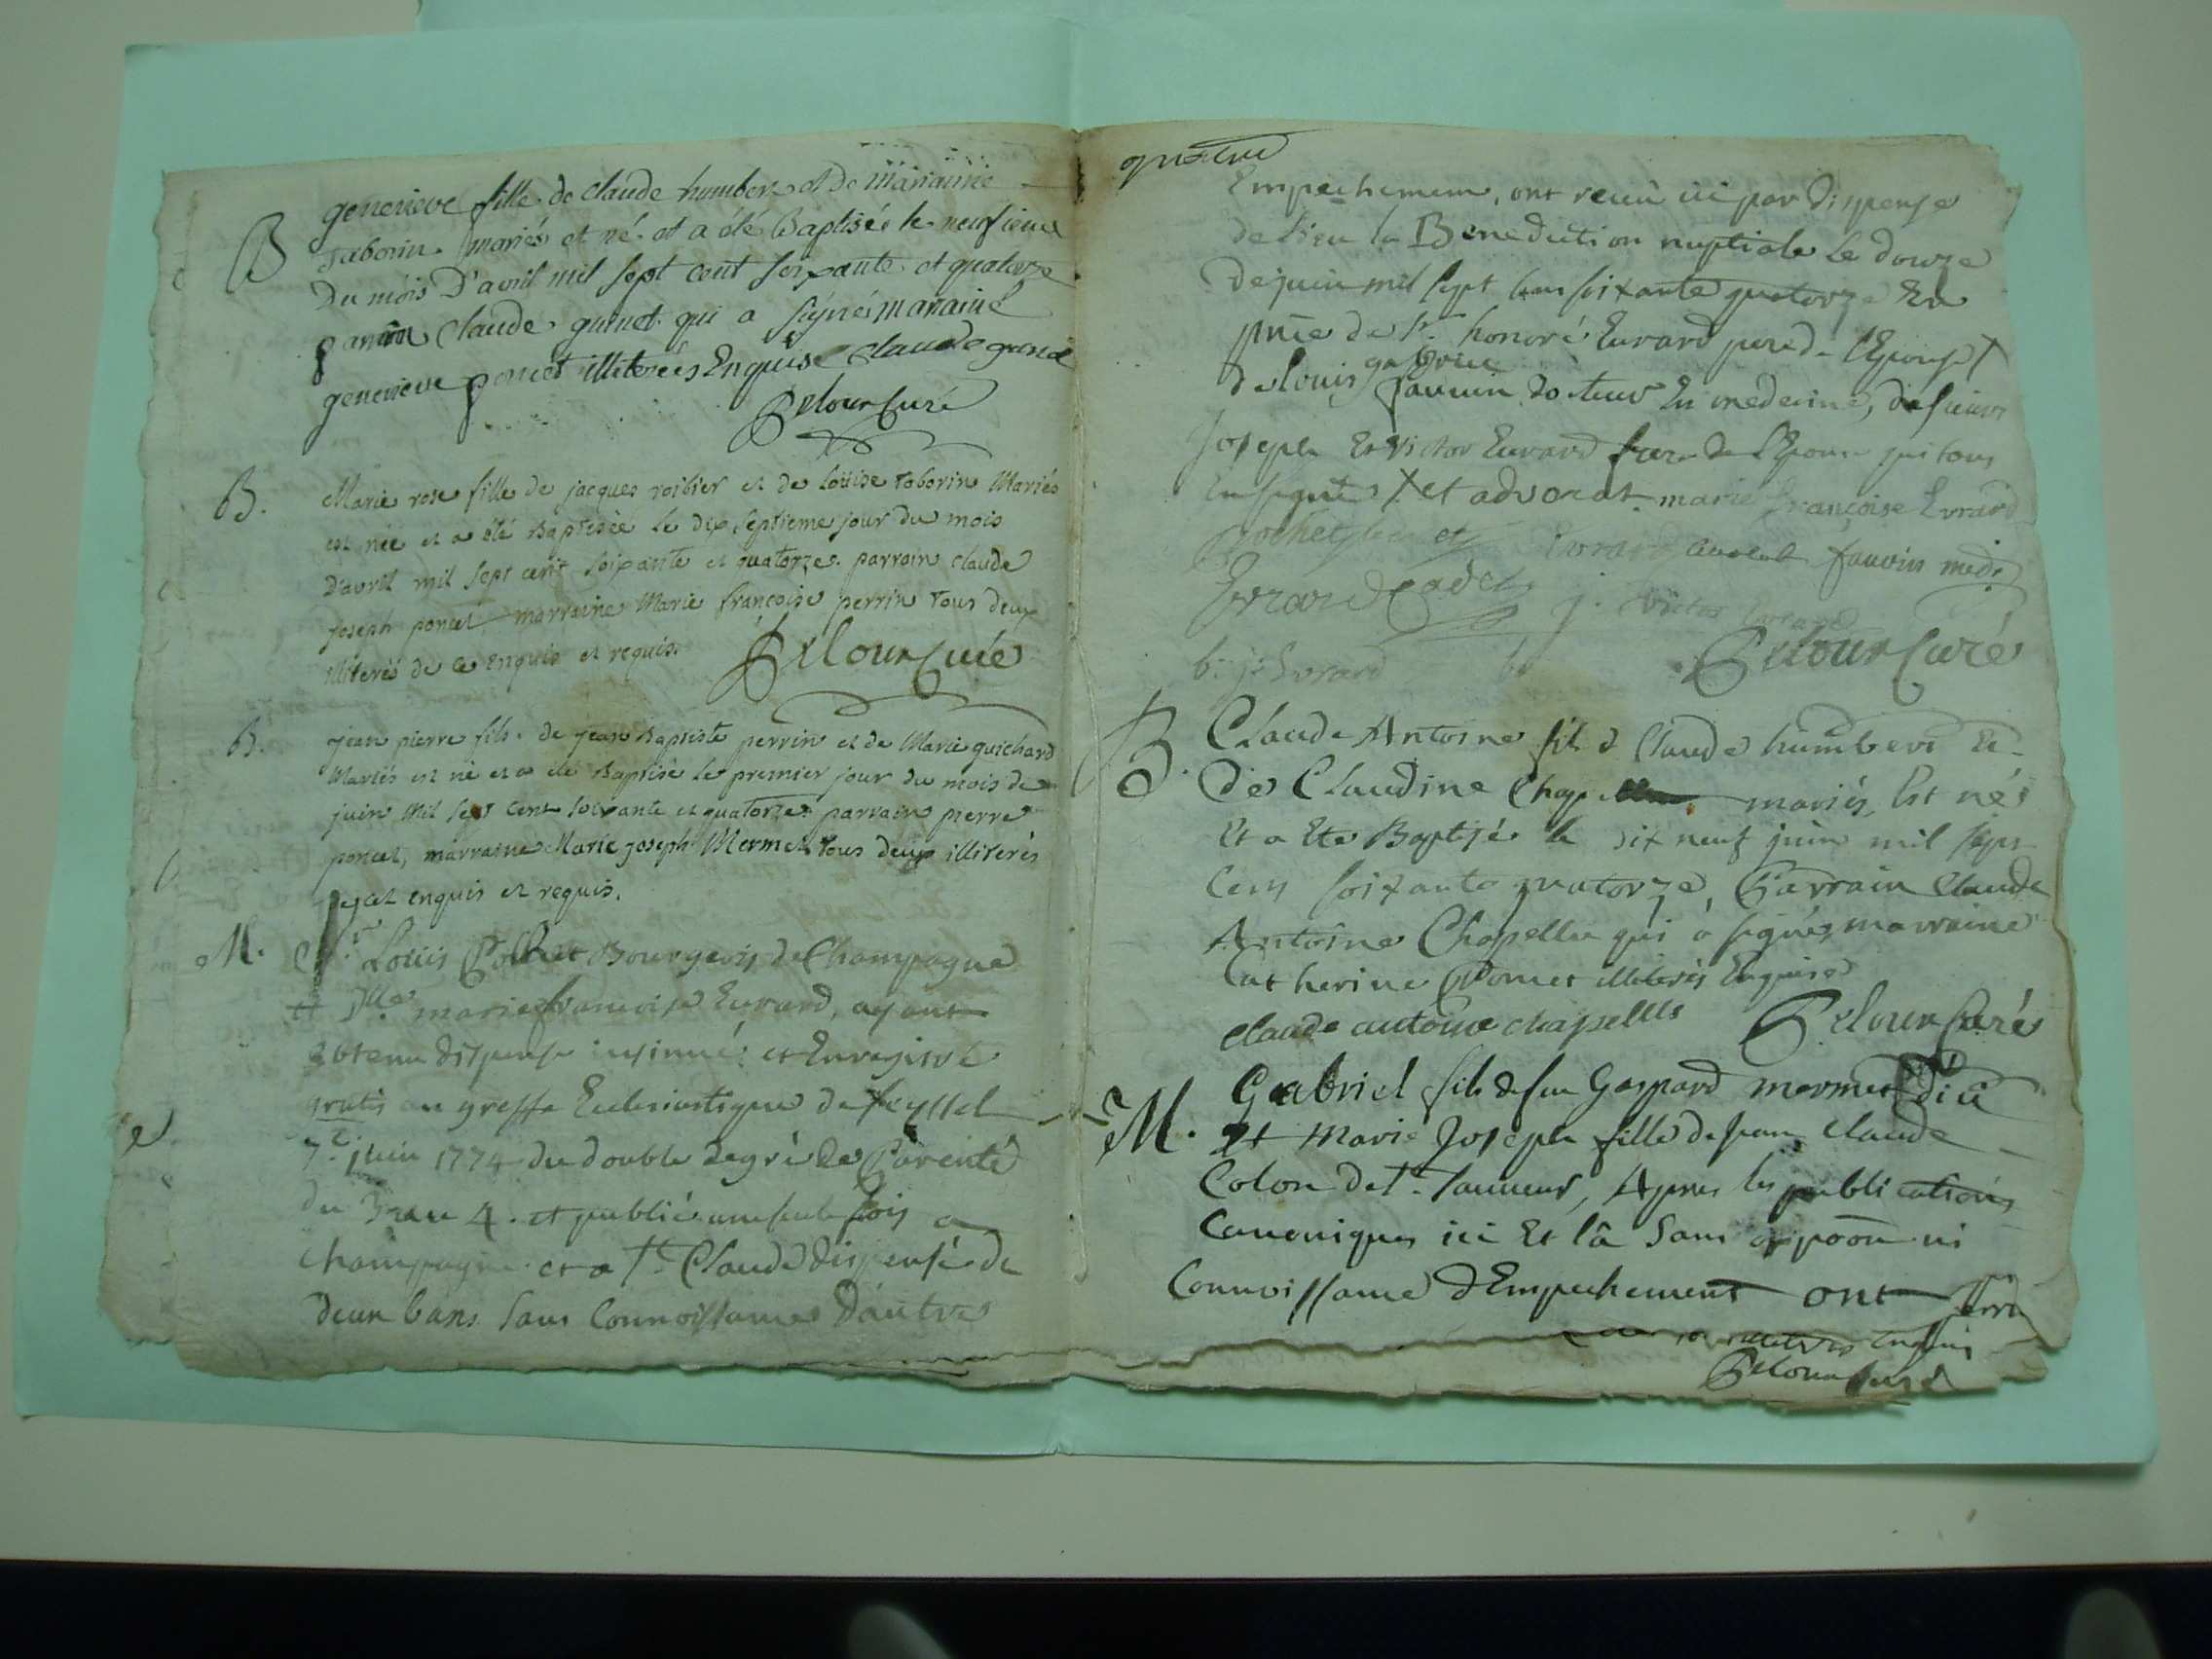 B genevieve fille de claude humbert et de marianne
taborin mariés et né et a été Baptisée le neufieme
Du mois D'avril mil sept cent soixante et quatorze
parrain claude guinet qui a signé maraine
genevieve poncet illiterées Enquise claude
Curé
B. Marie rose fille de jacques roibier et de Louise taborin Mariés
est née et a été Baptisée le dix septieme jour du mois
D'avril mil sept cent soixante et quatorze. parrain claude
joseph poncet marraine Marie françoise perrin tous deux
illiterés de ce enquis et requis. Curé
B. jean pierre fils de jean Baptiste perrin et de Marie guichard
Mariés est né et a été Baptisé le premier jour du mois de
juin mil sept cent soixante et quatorze parrain pierre
poncet, marraine Marie joseph Mermet tous deux illiterés
enquis et requis.
M. Sr. Louis Bourgeois de Champagne
et Dlle marie francoise Euvrard, ayant
obtenu dispense insinué et Enregistré
gratis au greffe Ecclesiastique de
7e juin 1774 du double degré de Parenté
du 3 au 4. et publié une seule fois a
champagne et a St. Claude dispensé de
deux bans sans Connoissance D'autres
quatre
Empechement, ont receu ici par Dispense
de lieu la Benediction nuptiale le douze
de juin mil sept cent soixante quatorze En
pnce de Sr. honoré Euvard pere de l'Epouse X
de louis gabriel fauvin docteur En medecine, de sieurs
Joseph Et victor Euvard frere de l'Epouse qui tous
ont signés X et advocat marie françoise Evrard
Evrard avocat fauvin med.
Evrard Cadet j. victor Evrard
b. j. Evrard Curé
B. Claude Antoine fils d Claude humbert Et
de Claudine mariés, Est né
Et a Ete Baptisé le dix neuf juin mil sept
cent soixante quatorze, Parrain Claude
Antoine Chapelle qui a signé, marraine
Catherine illiterés Enquise
claude antoine chapelle Curé
M. Gabriel fils de feu Gaspard mermet
et marie Joseph fille de jean claude
Colon de St. Sauveur, Apres les publications
Canoniques ici Et là Sans oppoôn ni
Connoissance d'Empechement ont
illiteres Enquis
Curé